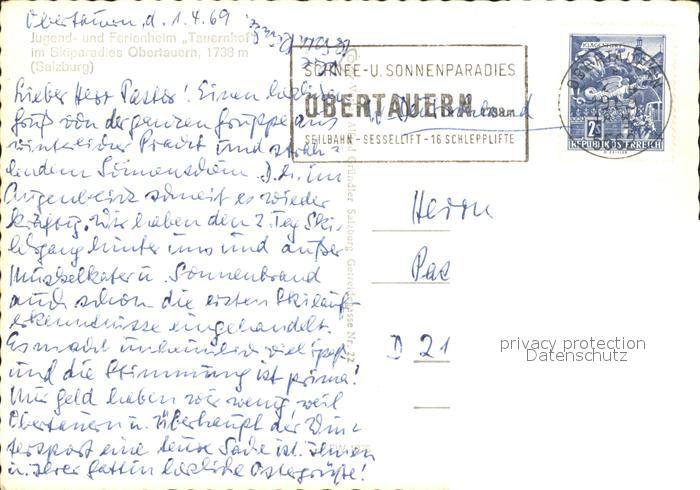 Obertauern, d. 1.4.69
Jugend- und Ferienheim „Tauernhof"
im Skiparadies Obertauern, 1738 m
(Salzburg)
Lieber Herr Pastor! Einen herzlichen
Gruß von der ganzen Gruppe aus
winterlicher Pracht und strah-
lendem Sonnenschein. D.h. im
Augenblick schneit es wieder
kräftig. Wir haben den 2. Tag Ski-
lehrgang hinter uns und außer
Muskelkater u. Sonnenbrand
auch schon die ersten Skilauf-
erkenntnisse eingehandelt.
Es macht unheimlich viel Spaß
und die Stimmung ist prima!
Nur Geld haben wir wenig, weil
Obertauern u. überhaupt der Win-
tersport eine teure Sache ist. Ihnen
u. Ihrer Gattin herzliche Ostergrüße!
SCHNEE-U. SONNENPARADIES
OBERTAUERN 1738m
SEILBAHN - SESSELLIFT - 16 SCHLEPPLIFTE
OBERTAUERN
KLAGENFURT
2
REPUBLIK ÖSTERREICH
Salzburg, Getreidegasse Nr. 22
Herrn
Pas
D 21
privacy protection
Datenschutz